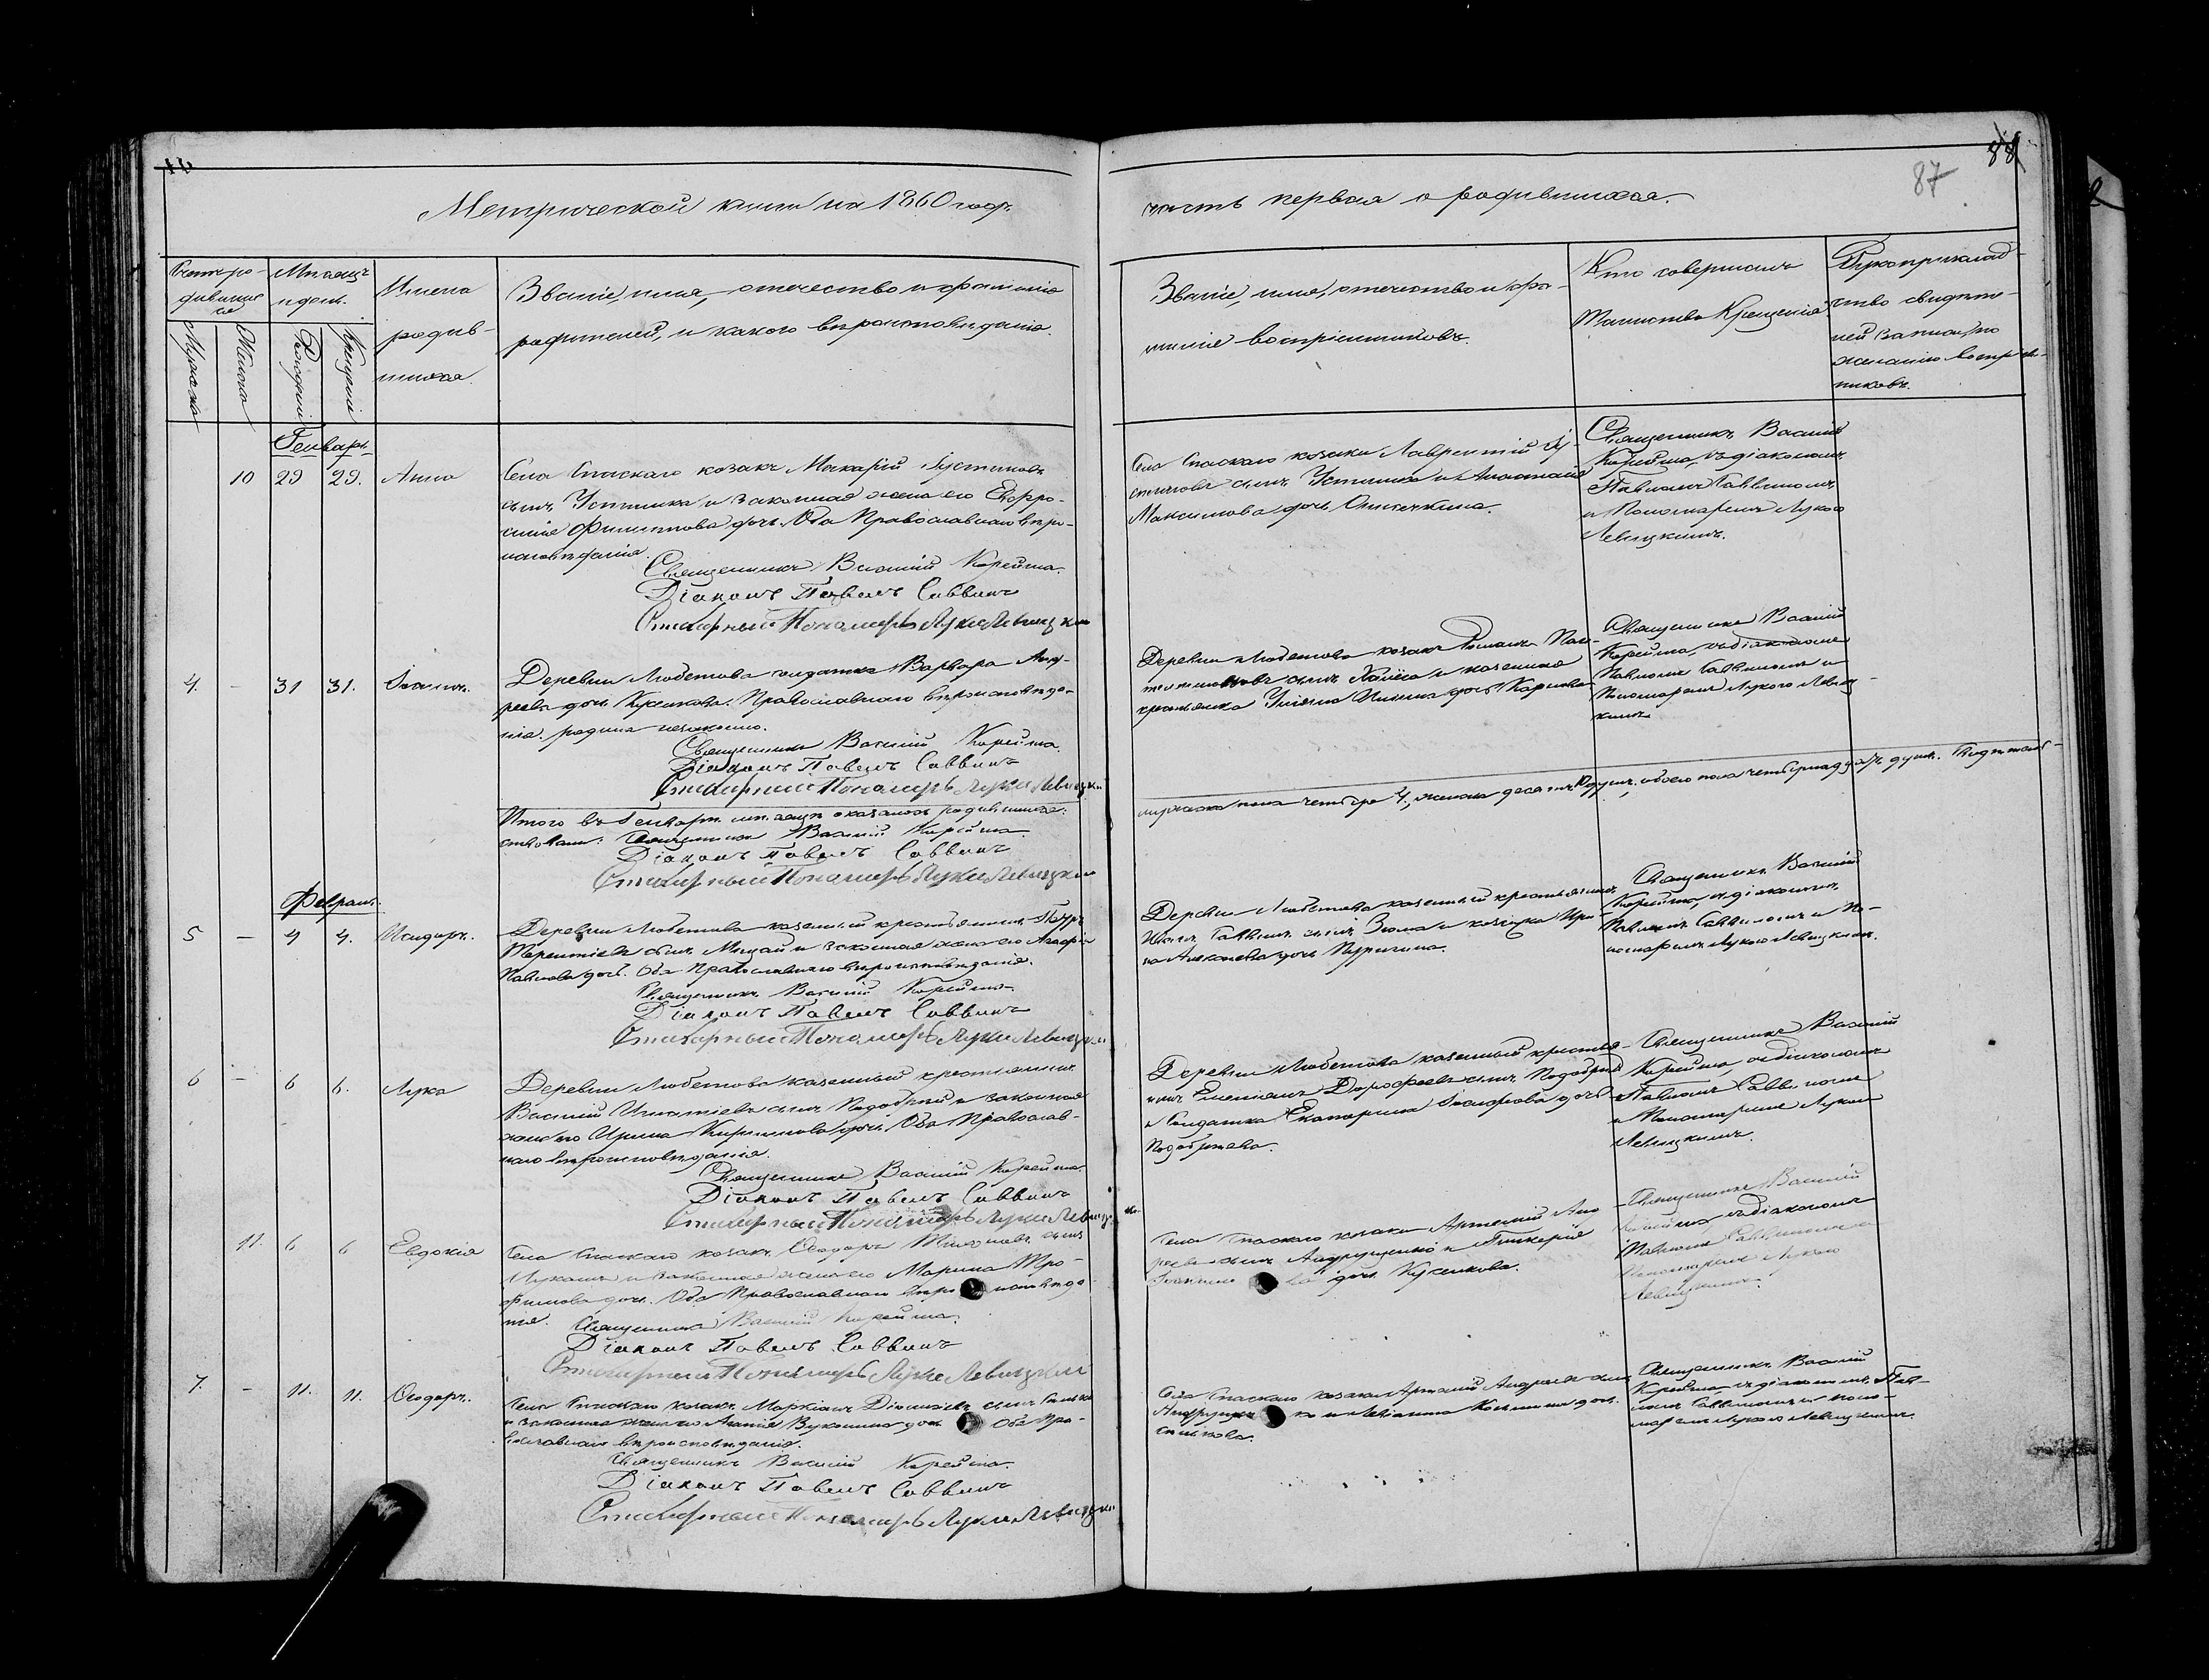 88
87
Метрической книги на 1860 годъ.
часть первая о родившихся.
Счетъ ро-
дивших-
ся
Мѣсяцъ
и день.
Мужеска
Женска
Рожденія
Крещенія
Имена
родив-
шихся.
Званіе, имя, отечество и фамилія
родителей, и какого вѣроисповѣданія.
Званіе, имя, отечество и фа-
милія воспріемниковъ.
Кто совершалъ
Таинство Крещенія
Рукоприклад-
ство свидѣте-
лей записи по
желанію
Генварь
10 29 29. Анна
Села Спаскаго козакъ Макарій Іустиновъ
сынъ Устимка и законная жена его Евфро-
синія Филиппова дочь. Оба Православнаго вѣро-
исповѣданія.
Священникъ Василій Корейша.
Діаконъ Павелъ Саввинъ
Стихарный Пономарь Лука Левицкій
Села Спаскаго козаки Лаврентій Іу-
стиновъ сынъ Устимка и Анастасія
Максимова дочь
Священникъ Василій
Корейша, съ діакономъ
Павломъ Саввиномъ
и Пономаремъ Лукою
Левицкимъ.
4. – 31 31.
Деревни Любетова солдатка Варвара Анд-
реева дочь Куженкова. Православнаго вѣроисповѣда-
нія. родила незаконно.
Священникъ Василій Корейша.
Діаконъ Павелъ Саввинъ
Стихарный Пономарь Лука Левицкій
Деревни Любетова козакъ Романъ Пан-
телеимоновъ сынъ и казенная
крестьянка дочь Карпова
Священникъ Василій
Корейша, съ діакономъ
Павломъ Саввиномъ и
Пономаремъ Лукою Левиц-
кимъ
Итого въ Генварѣ мѣсяцѣ оказалось родившихся:
мужеска пола четыре 4, женска десять 10 душъ, обоего пола четырнадцать душъ. Свидѣтель-
ствовали: Священникъ Василій Корейша
Діаконъ Павелъ Саввинъ
Стихарный Пономарь Лука Левицкій
Февраль.
5 – 4 4. Исидоръ.
Деревни Любетова казенный крестьянинъ Петръ
Терентіевъ сынъ и законная жена его Агафія
Павлова дочь. Оба Православнаго вѣроисповѣданія.
Священникъ Василій Корейша
Діаконъ Павелъ Саввинъ
Стихарный Пономарь Лука Левицкій
Деревни Любетова казенный крестьянинъ
Иванъ Саввинъ сынъ и козачка Ири-
на дочь
Священникъ Василій
Корейша, съ діакономъ
Павломъ Саввиномъ и По-
номаремъ Лукою Левицкимъ.
6 – 6 6. Лука
Деревни Любетова казенный крестьянинъ
Василій Игнатіевъ сынъ Подобрій и законная
жена его Ирина Кириллова дочь. Оба Православ-
наго вѣроисповѣданія.
Священникъ Василій Корейша.
Діаконъ Павелъ Саввинъ
Стихарный Пономарь Лука Левицкій.
Деревни Любетова казенный крестья-
нинъ Емеліанъ Дорофеевъ сынъ Подобрій
и Солдатка Екатерина Іосифова дочь
Подобріева.
Священникъ Василій
Корейша, съ діакономъ
Павломъ Саввиномъ
и Пономаремъ Лукою
Левицкимъ.
11. 6 6 Евдокія
Села Спаскаго козакъ Ѳеодоръ сынъ
и законная жена его Марина Тро-
фимова дочь. Оба Православнаго вѣроисповѣда-
нія.
Священникъ Василій Корейша.
Діаконъ Павелъ Саввинъ
Стихарный Пономарь Лука Левицкій
Села Спаскаго козаки Артемій Анд-
реевъ сынъ Андрущенко и Гликерія
дочь Куженкова.
Священникъ Василій
Корейша, съ діакономъ
Павломъ Саввиномъ и
Пономаремъ Лукою
Левицкимъ.
7. – 11. 11. Ѳеодоръ.
Села Спаскаго козакъ Маркіанъ Діонисіевъ сынъ
и законная жена его Агапія дочь Оба Пра-
вославнаго вѣроисповѣданія.
Священникъ Василій Корейша.
Діаконъ Павелъ Саввинъ
Стихарный Пономарь Лука Левицкій
Села Спаскаго козаки Артемій Андреевъ сынъ
Андрущенко и дочь
Священникъ Василій
Корейша съ діакономъ Пав-
ломъ Саввиномъ и поно-
маремъ Лукою Левицкимъ.